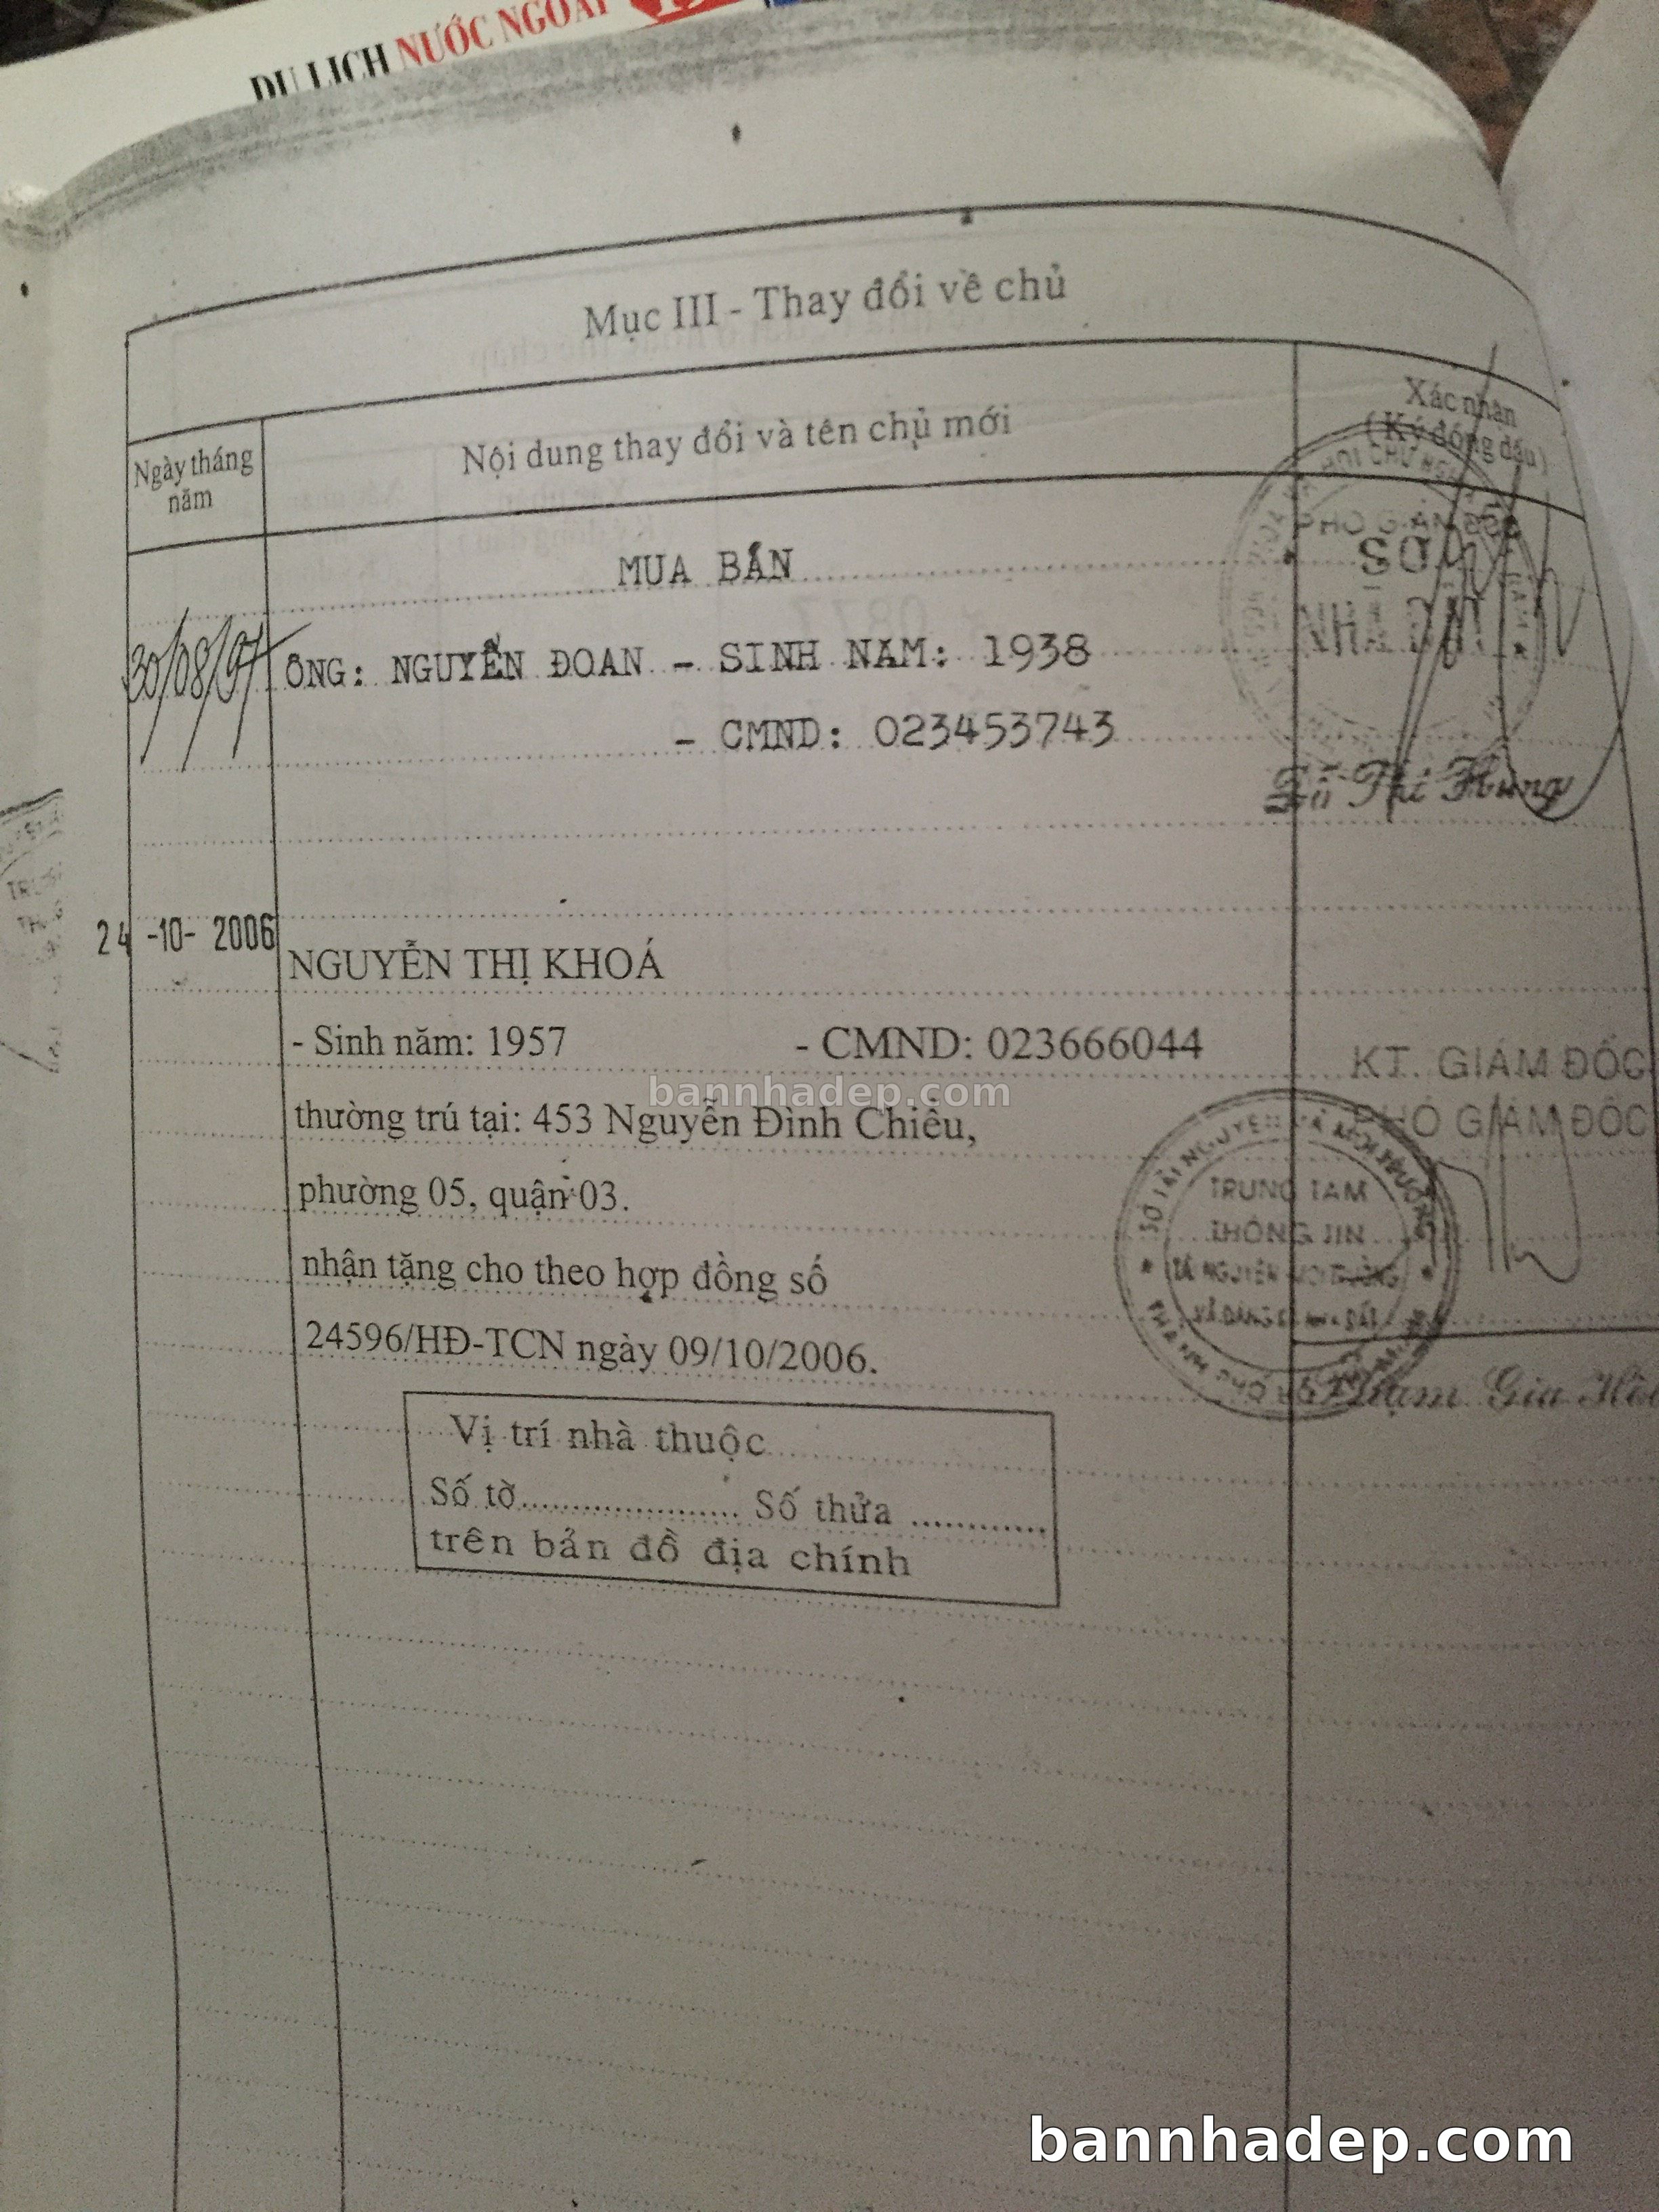 DU LỊCH NƯỚC NGOÀI
Mục III - Thay đổi về chủ
Ngày tháng năm
Nội dung thay đổi và tên chủ mới
Xác nhận
( Ký đóng dấu)
MUA BÁN
PHÓ GIÁM ĐỐC
SỞ
NHÀ ĐẤT
30/08/97
ÔNG: NGUYỄN ĐOAN - SINH NĂM: 1938
- CMND: 023453743
24 -10- 2006
NGUYỄN THỊ KHOÁ
- Sinh năm: 1957 - CMND: 023666044
KT. GIÁM ĐỐC
bannhadep.com
thường trú tại: 453 Nguyễn Đình Chiêu,
PHÓ GIÁM ĐỐC
phường 05, quận 03.
SỞ TÀI NGUYÊN VÀ MÔI TRƯỜNG
TRUNG TÂM
THÔNG TIN
TÀI NGUYÊN MÔI TRƯỜNG
nhận tặng cho theo hợp đồng số
24596/HĐ-TCN ngày 09/10/2006.
Phạm Gia
Vị trí nhà thuộc
Số tờ.................... Số thửa ............
trên bản đồ địa chính
bannhadep.com